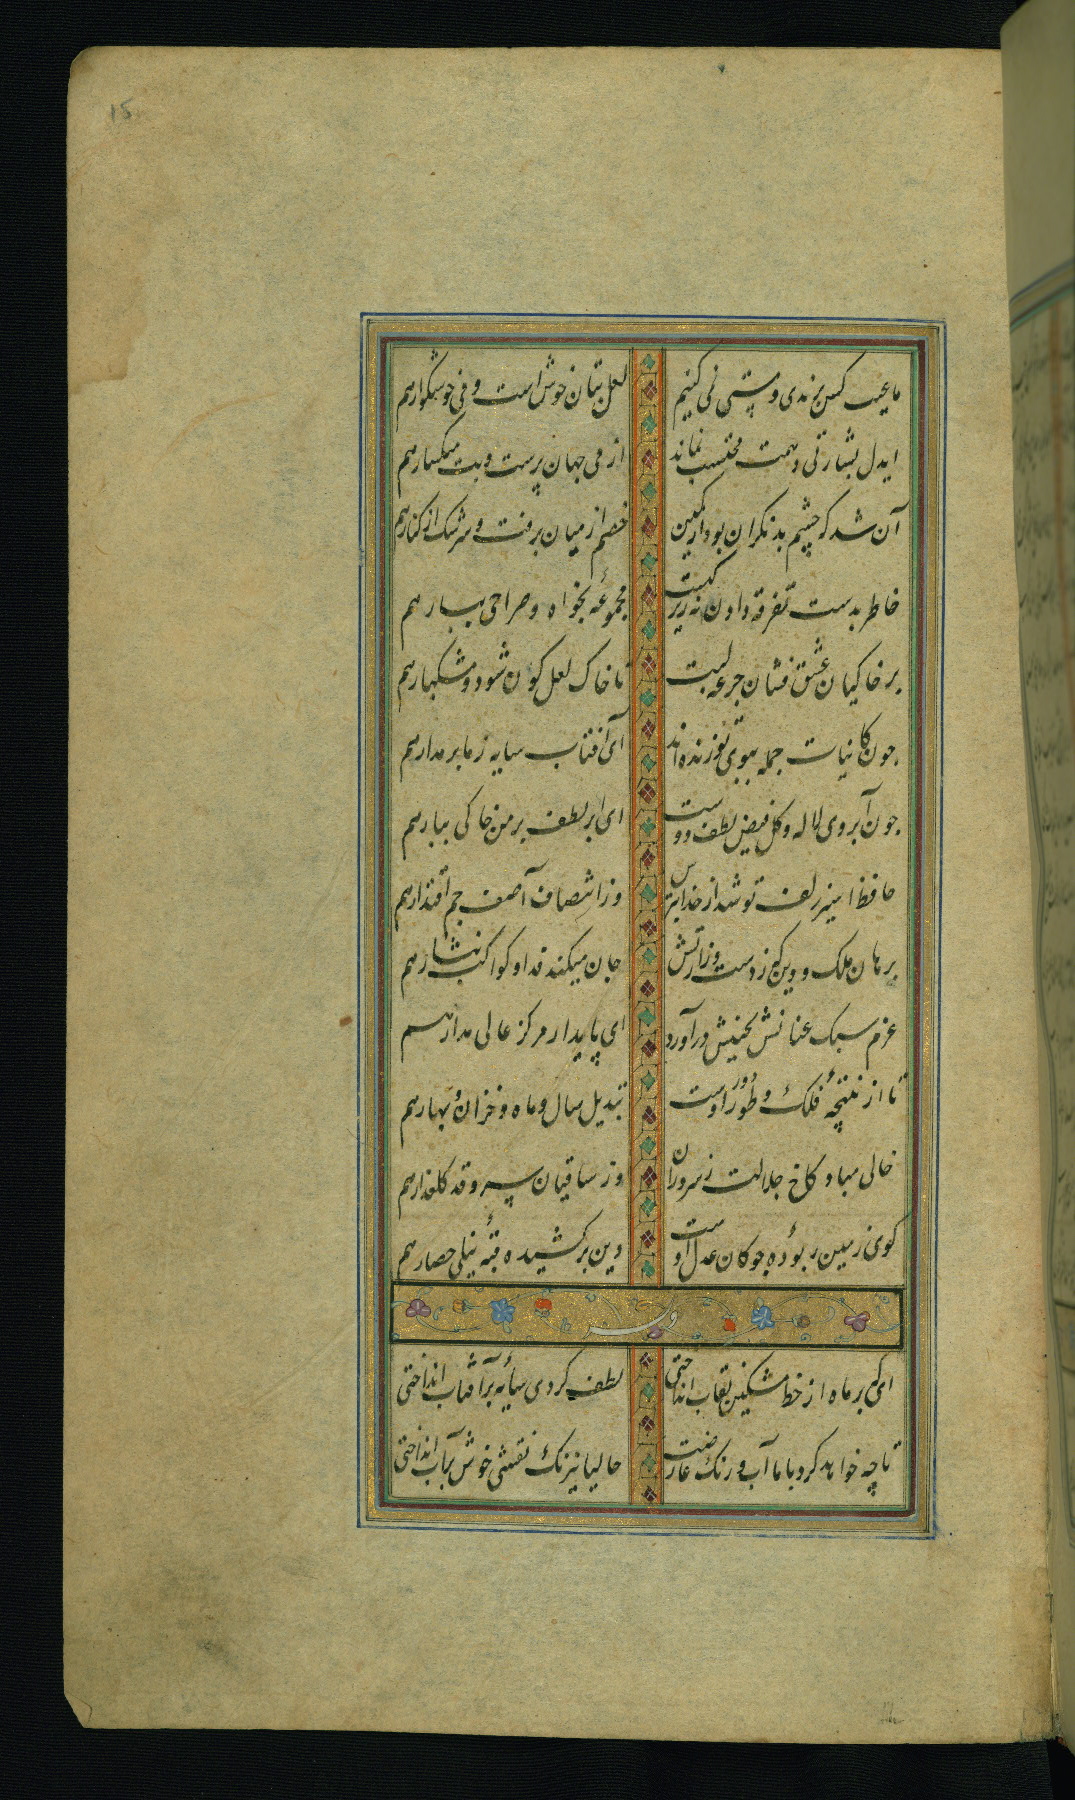 15
ما عیب کس برندی و مستی نمی کنیم لعل بتان خوش است و می خوشگوار هم
ایدل بشارتی دهمت محتسب نماند از می جهان پرست و بت میکسار هم
آن شد که چشم بد نکران بود از کمین خصم از میان برفت و سرشک از کنار هم
خاطر بدست تفرقه دادن نه زیرکیست مجموعهٔ بخواه و صراحی بیار هم
بر خاکیان عشق فشان جرعه لبت تا خاک لعل کون شود و مشکبار هم
چون کاینات جمله ببوی تو زنده اند ای آفتاب سایه ز ما بر مدار هم
چون آبروی لاله و کل فیض لطف تست ای ابر لطف بر من خاکی ببار هم
حافظ اسیر زلف تو شد از خدا بترس وز انتصاف آصف جم اقتدار هم
برهان ملک و دین که ز دست وزارتش جان میکند فدا و کواکب نثار هم
عزم سبک عنانش بجنبش در آورد ای پایدار مرکز عالی مدار هم
تا از نتیجهٔ فلک و طور دور اوست تبدیل سال و ماه و خزان و بهار هم
خالی مباد کاخ جلالت ز سروران وز ساقیان سرو قد کلعذار هم
کوی زمین ربودهٔ چوکان عدل اوست وین بر کشیده قبهٔ نیلی حصار هم
ای که بر ماه از خط مشکین نقاب انداختی لطف کردی سایهٔ بر آفتاب انداختی
تا چه خواهد کرد با ما آب و رنک عارضت حالیا نیرنک نقشی خوش بر آب انداختی